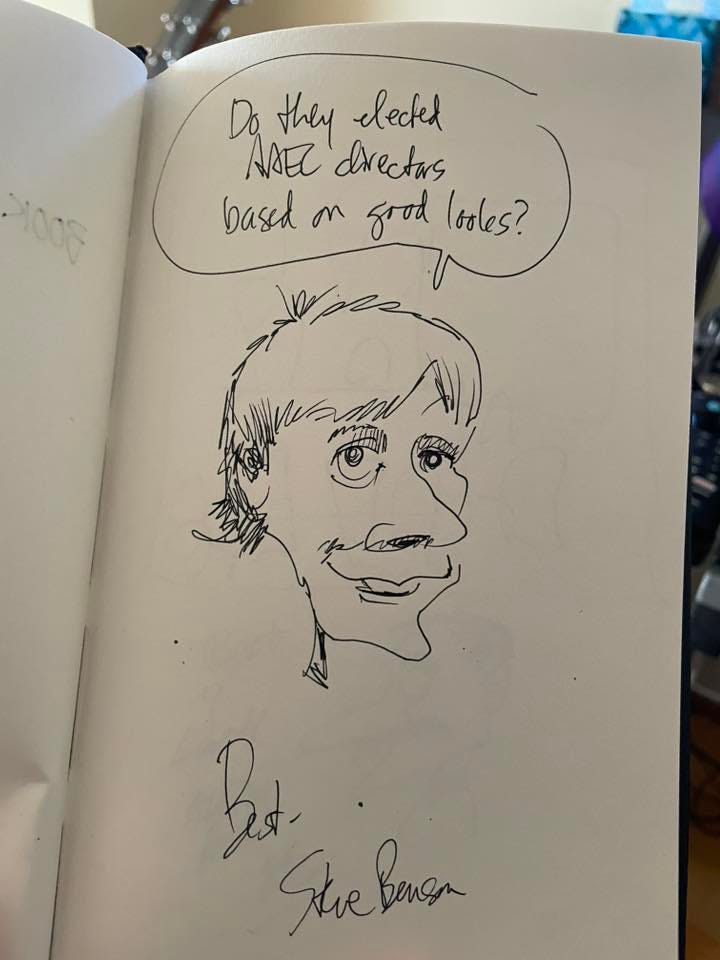 Do they elected
AAEC directors
based on good looks?
Best-
Steve Benson
BOOK